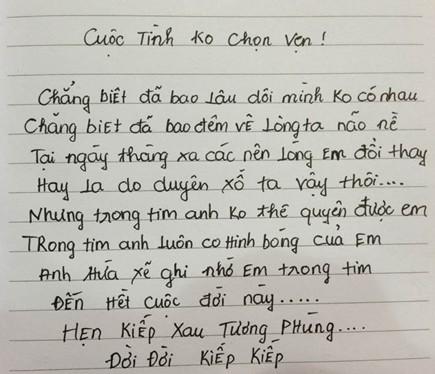 Cuộc Tình Ko Chọn Vẹn !
Chẳng biết đã bao Lâu dôi mình Ko có nhau
Chẳng biết đã bao đêm về Lòng ta não nề
Tại ngày tháng xa các nên Lòng Em đổi thay
Hay La do duyên xố ta vậy thôi....
Nhưng trong tim anh Ko thể quyên được em
TRong tim anh Luôn co Hình bóng của Em
Anh Hứa xẽ ghi nhớ Em trong tim
ĐẾN HẾt Cuộc đời này......
HẸN KiẾP XAU TƯƠNG PHÙNG....
ĐỜi ĐỜi KiẾP KiẾP